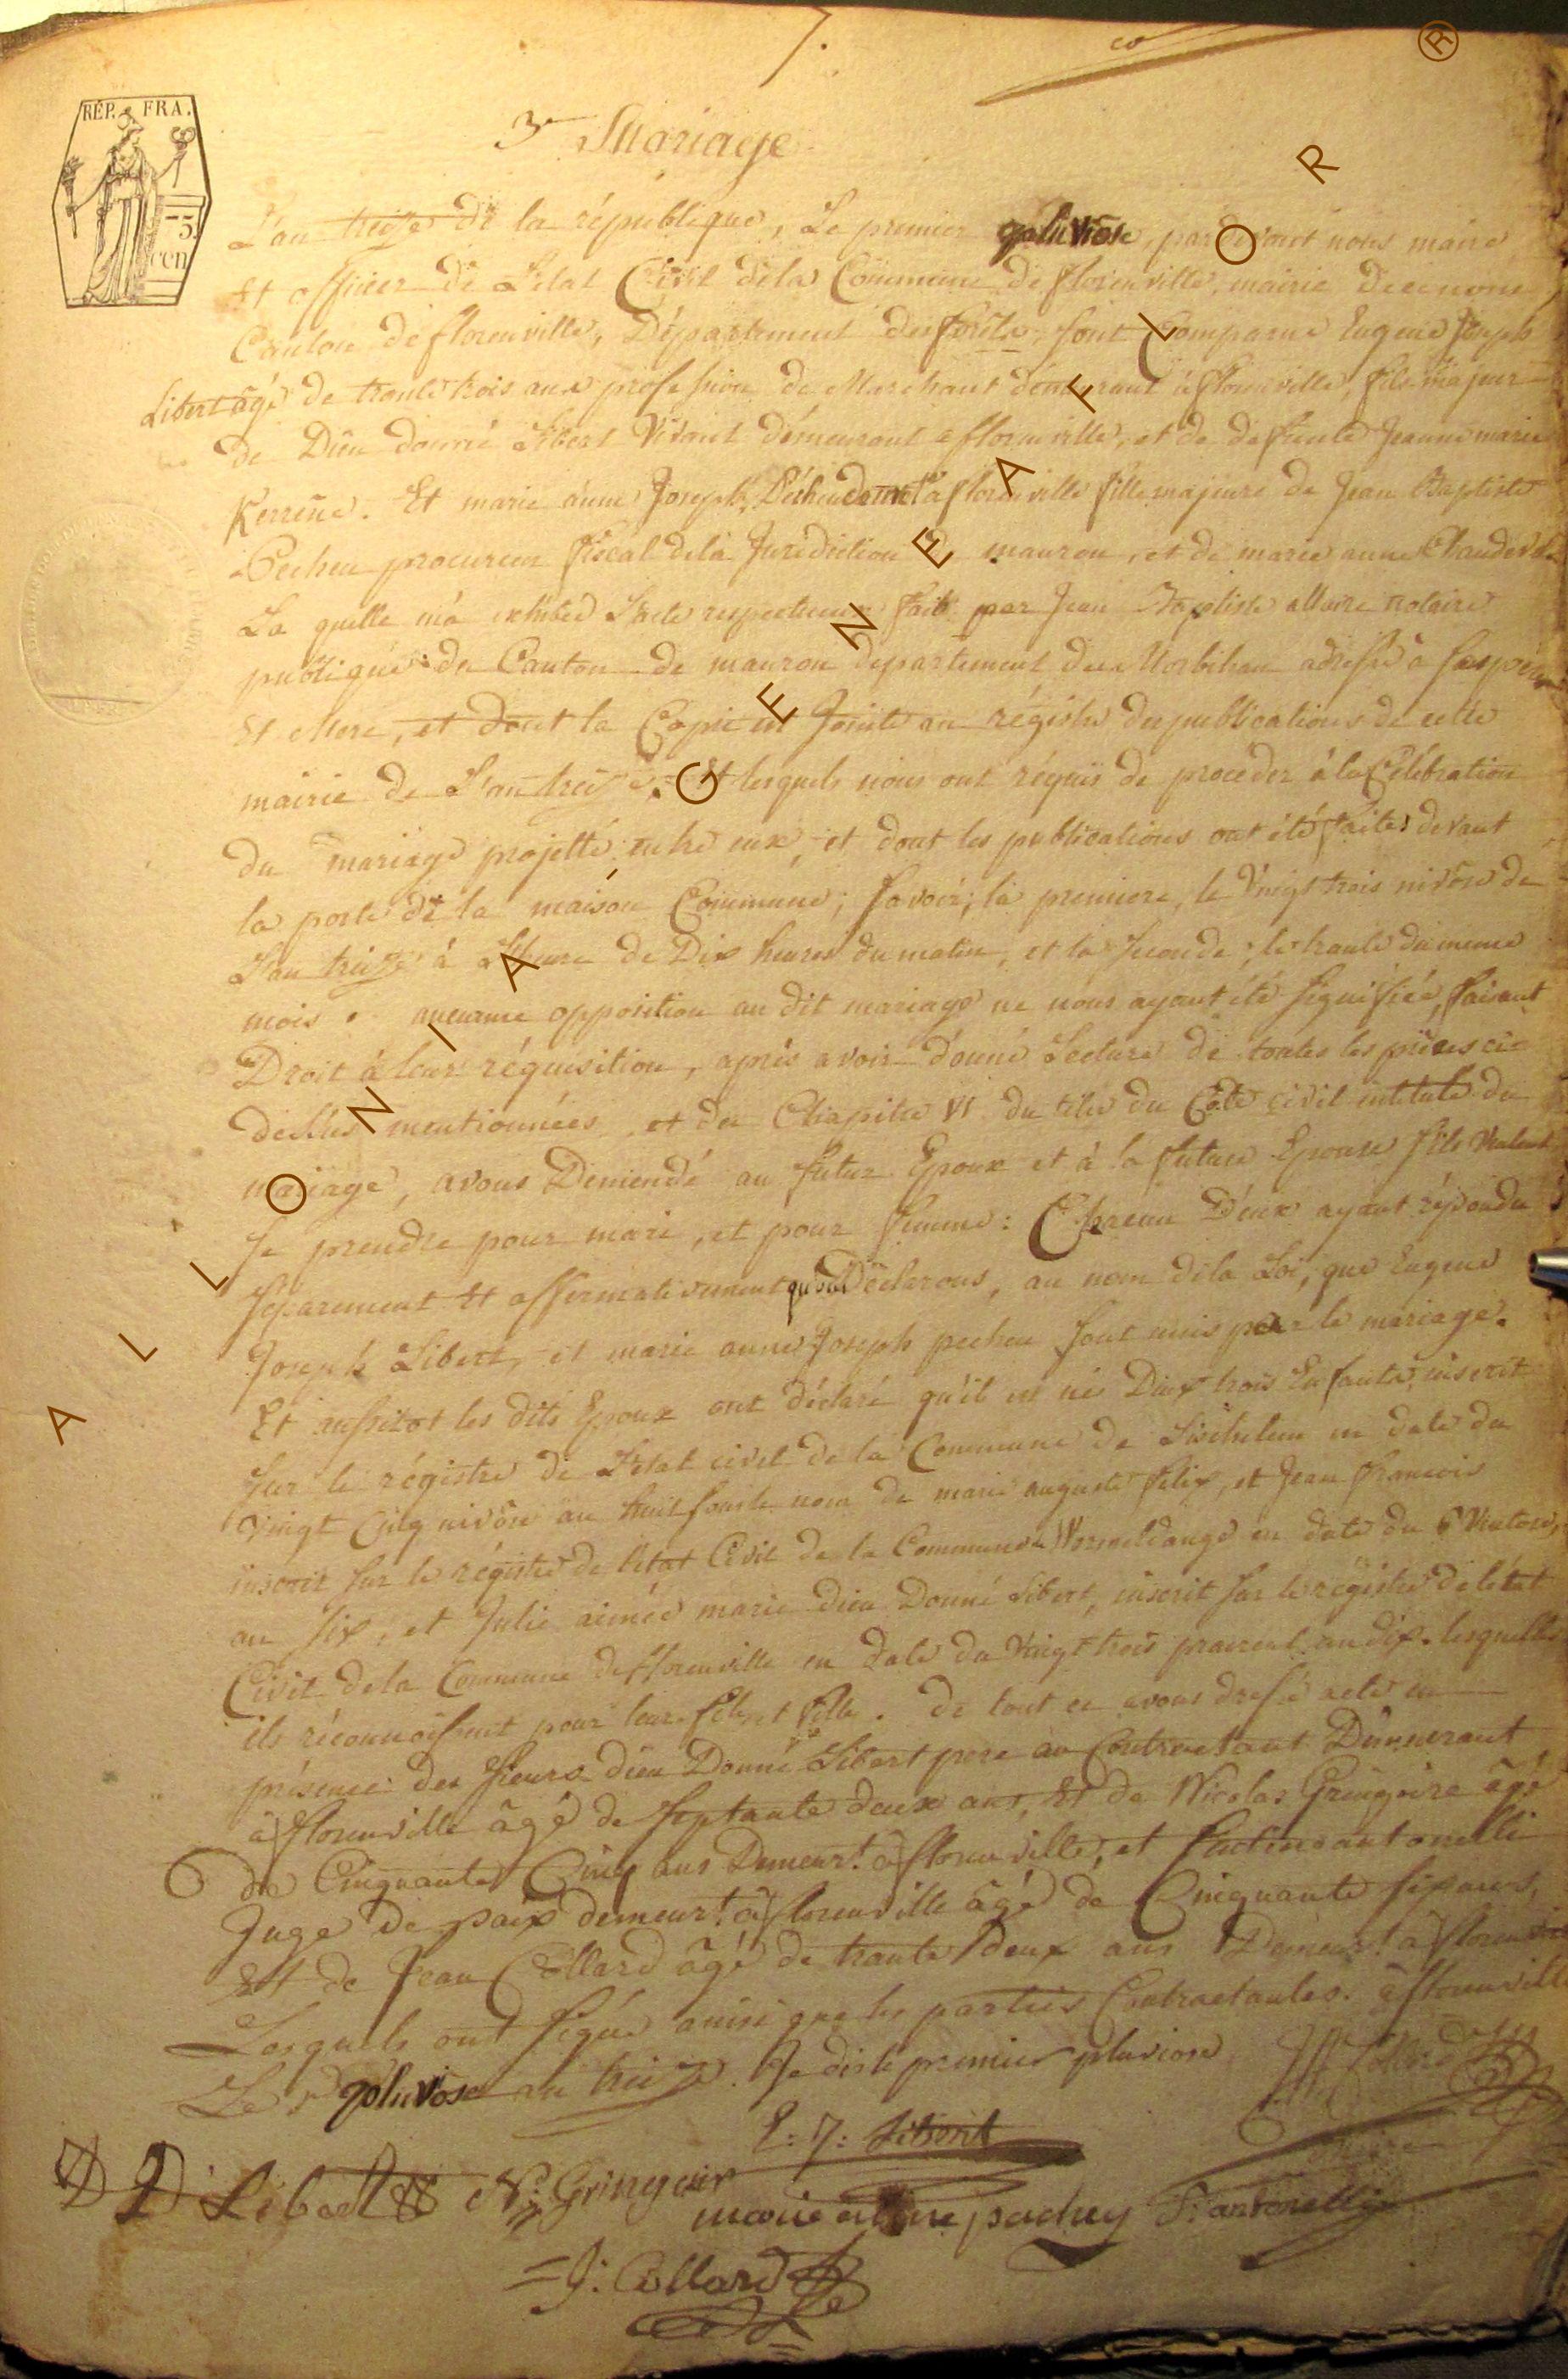 7.
RÉP. FRA.
3
cen
3e Mariage
L'an treize de la république, Le premier pluviose, par devant nous maire
Et officier de L'Etat Civil de la Commune de florenville, mairie de ce nom,
Canton de florenville, Département des forêts, sont Comparue Eugene Joseph
Libert âgé de trente trois ans profession de Marchant démeurant à florenville, fils majeur
de Dieu donné Libert Vivant démeurant a florenville, et de defunte Jeanne marie
Et marie anne Joseph, Pécheu demt à florenville fille majeure de Jean Baptiste
Pecheu procureur fiscal de la Juridiction de mauron, et de marie anne
La quelle m'a exhibée L'acte respectueux fait par Jean Baptiste allaire notaire
publique du Canton de mauron departement du Morbihan adressé à ses père
Et Mere, et dont la Copie est Jointe au régistre des publications de cette
mairie de L'an treize. Et lesquels nous ont réquis de proceder à la Célébration
du mariage projetté entre eux, et dont les publications ont été faites devant
la porte de la maison Commune; savoir; la premiere, le Vingt trois nivôse de
L'an treize à L'heure de Dix heures du matin, et la seconde; le trante du meme
mois. aucunne opposition au dit mariage ne nous ayant été signifiée, faisant
Droit à leur réquisition, après avoir donné Lecture de toutes les pièces ci-
dessus mentionnées, et du Chapitre VI du titre du Code civil intitulé du
mariage, avons Demendé au futur Epoux et à la future Epouse s'ils veulent
se prendre pour mari, et pour femme: Chaceun D'eux ayant répondu
séparement Et affirmativement Déclarons, au nom de la Loi, que Eugene
Joseph Libert, et marie anne Joseph pecheu sont unis par le mariage.
Et aussitot les dits Epoux ont déclaré qu'il est né Deux trois Enfants, inscrit
sur le régistre de L'Etat civil de la Commune de en date du
Vingt Cinq nivôse an huit sous le nom de marie auguste felix, et Jean francois
inscrit sur le régistre de l'état Civil de la Commune Wormeldange en date du 6 Ventose,
an six, et Julie aimée marie Dieu Donné Libert, inscrit sur le régistre de l'état
Civil de la Commune de florenville en date du Vingt trois praireal an dix. lesquelles
ils réconnoissent pour leur fils et fille. De tout ce avons dressé acte en
présence des sieurs dieu Donné Libert pere au Contractant Démeurant
à florenville âgé de septante deux ans, Et de Nicolas Gringoire âgé
de Cinquante Cinq ans Demeurt. à florenville, et antonelli
Juge De paix demeurt. à florenville âgé de Cinquante six ans,
Et de Jean Collard âgé de trante deux ans Demeurt. à florenville
Lesquels ont signé ainsi que les parties Contractantes. à florenville
Le 1er pluviose an treize. Je dis le premier pluviose
E: J: Libert
D D Libert N: Gringoir
marie anne pechey F. antonelli
J: Collard
ALLONIA GENEAFLOR
®